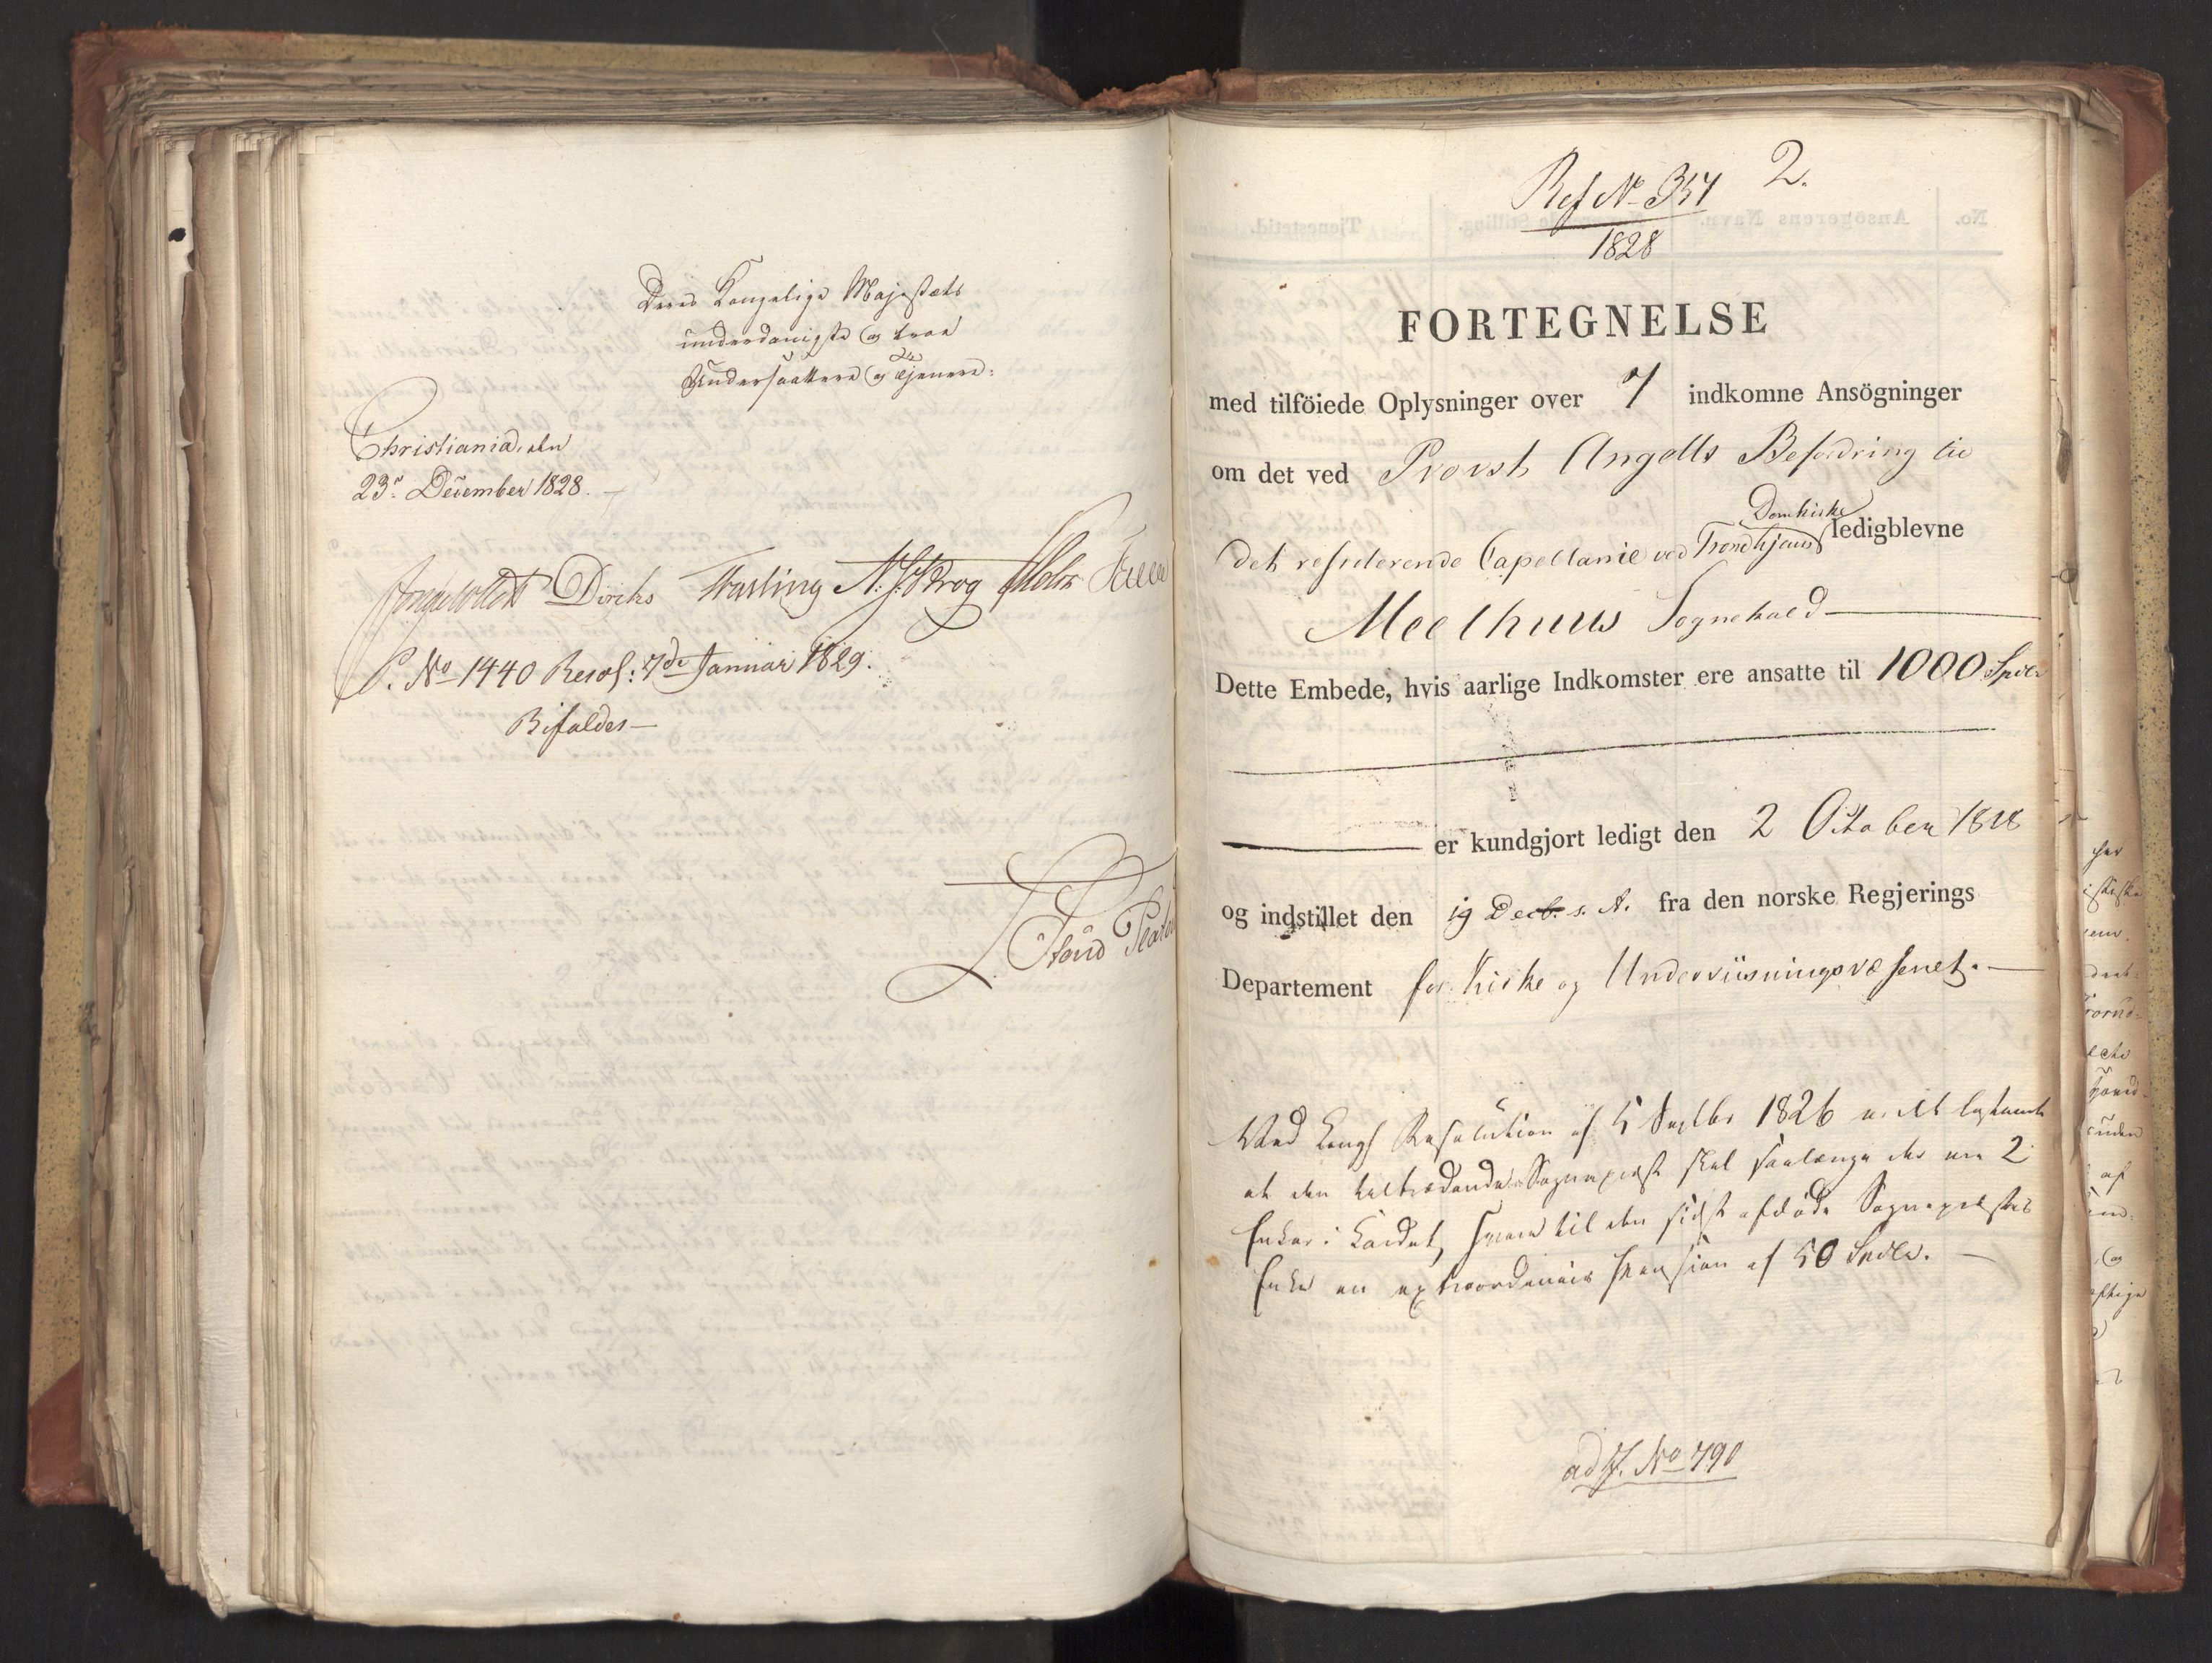 Deres Kongelige Majestæts
underdanigste og troe
Undersaattere og Tjenere:
Christiania, den
23de December 1828.
Diriks Treschow Krog
S. No 1440 Resol: 7de Januar 1829.
Bifaldes
Ref No 357 2.
1828
FORTEGNELSE
med tilföiede Oplysninger over 7 indkomne Ansögninger
om det ved Provst Angells Befordring til
Domkirke
det residerende Capellanie ved Trondhjems ledigblevne
Meelhuus Sognekald
Dette Embede, hvis aarlige Indkomster ere ansatte til 1000 Spdlr
er kundgjort ledigt den 2 October 1828
og indstillet den 19 Decb. s. A. fra den norske Regjerings
Departement for Kirke og Underviisningsvæsenet.
Ved Kongl Resolution af 5 Septbr 1826 er det bestemt
at den tiltrædende Sognepræst skal saalænge der ere 2
Enker i Kaldet, svare til den sidst afdøde Sognepræstes
Enke en extraordinair Pension af 50 Spdlr.
ad J. No 790